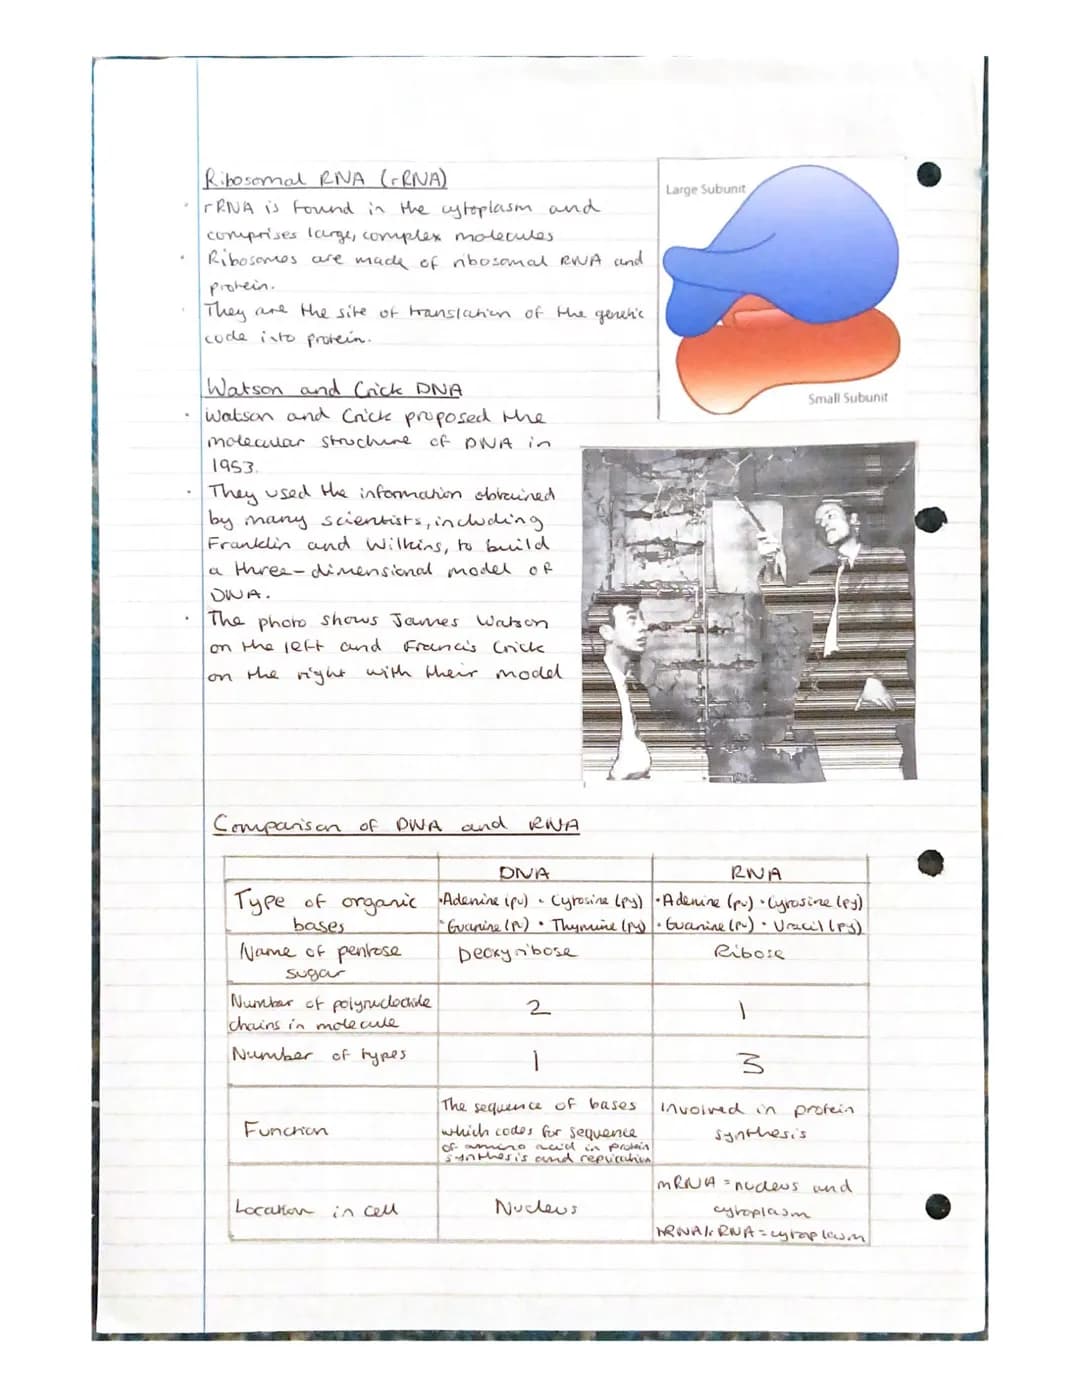 Ribosomal RNA (rRNA)
· rRNA is found in the cytoplasm and
comprises large, complex molecules
· Ribosomes are made of ribosomal RNA and
protein.
· They are the site of translation of the genetic
code into protein.
Large Subunit
Small Subunit
Watson and Crick DNA
· Watson and Crick proposed the
molecular structure of DNA in
1953.
· They used the information obtained
by many scientists, including
Franklin and Wilkins, to build
a three-dimensional model of
DNA.
· The photo shows James Watson
on the left and Francis Crick
on the right with their model
Comparison of DNA and RNA
DNA RNA
Type of organic bases
·Adenine (pu) · Cytosine (py)
·Guanine (pu) · Thymine (py)
·Adenine (pu) · Cytosine (py)
·Guanine (pu) · Uracil (py)
Name of pentose
sugar
Deoxyribose
Ribose
Number of polynucleotide
chains in molecule
2
1
Number of types
1
3
Function
The sequence of bases
which codes for sequence
of amino acid in protein
synthesis and replication
Involved in protein
synthesis
Location in cell
Nucleus
mRNA = nucleus and
cytoplasm
tRNA/rRNA = cytoplasm